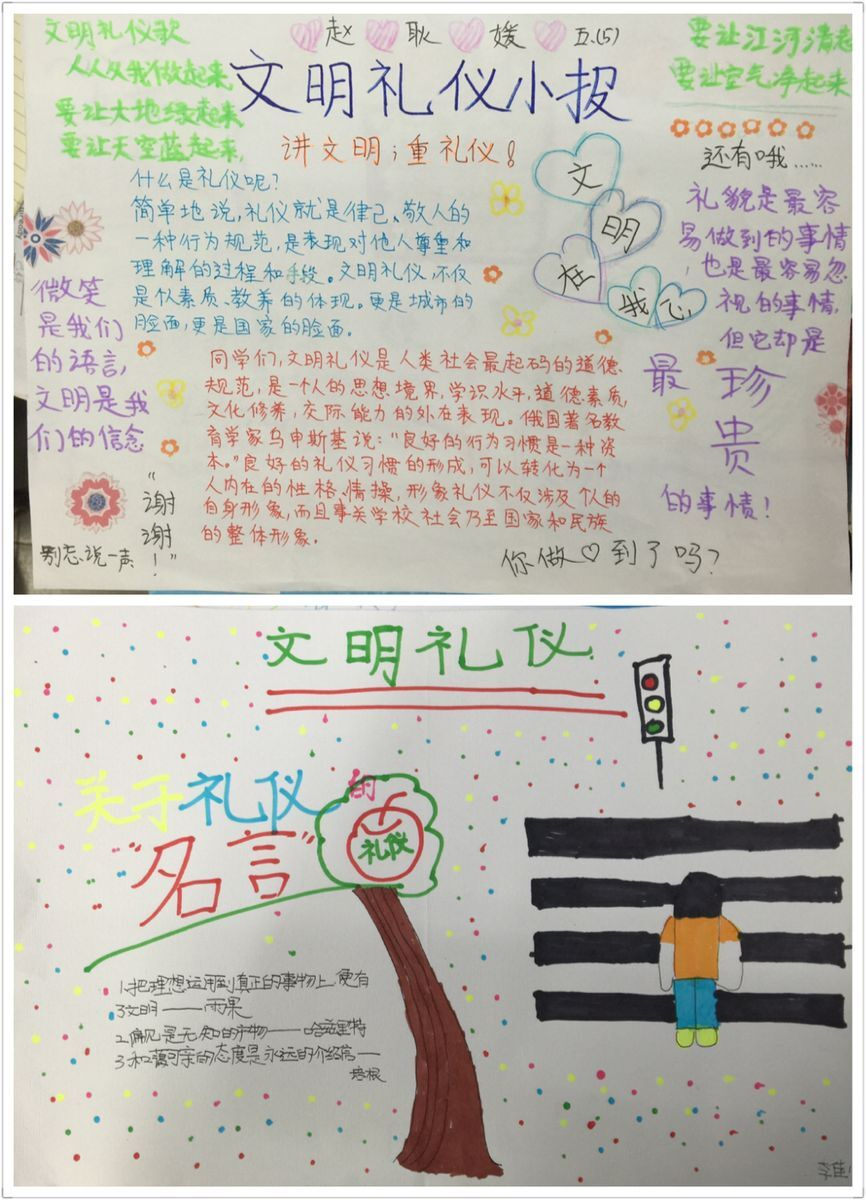 赵耿媛 五.(5)
文明礼仪小报
文明礼仪歌
人人从我做起来
要让大地绿起来
要让天空蓝起来,
要让江河清起来
要让空气净起来
讲文明;重礼仪!
什么是礼仪呢?
简单地说,礼仪就是律己、敬人的
一种行为规范,是表现对他人尊重和
理解的过程和手段。文明礼仪,不仅
是个人素质、教养的体现。更是城市的
脸面,更是国家的脸面。
文
明
在
我心
还有哦……
礼貌是最容
易做到的事情
,也是最容易忽
视的事情,
但它却是
最珍
贵
的事情!
微笑
是我们
的语言,
文明是我
们的信念
同学们,文明礼仪是人类社会最起码的道德
规范,是一个人的思想境界,学识水平,道德素质,
文化修养,交际能力的外在表现。俄国著名教
育学家乌申斯基说:“良好的行为习惯是一种资
本。”良好的礼仪习惯的形成,可以转化为一个
人内在的性格、情操,形象礼仪不仅涉及个人的
自身形象,而且事关学校社会乃至国家和民族
的整体形象。
别忘说一声
“谢
谢
!”
你做♡到了吗?
文明礼仪
关于礼仪的
“名言”
礼仪
1.把理想运用到真正的事物上,便有
了文明——雨果
2.偏见是无知的产物——哈兹里特
3.和蔼可亲的态度是永远的介绍信——
培根